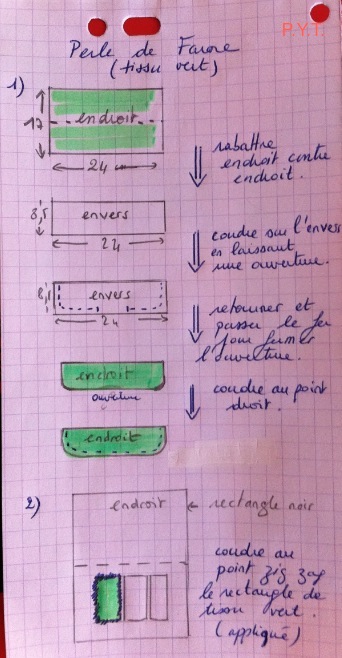 P.Y.T.
Perle de Farore
(tissu vert)
1)
endroit
17
24
rabattre
endroit contre
endroit.
8,5
envers
24
coudre sur l'envers
en laissant
une ouverture.
8,5
envers
24
retourner et
passer le fer
pour fermer
l'ouverture.
endroit
ouverture
coudre au point
droit.
endroit
2)
endroit
rectangle noir
coudre au
point zig zag
le rectangle de
tissu vert.
(appliqué)